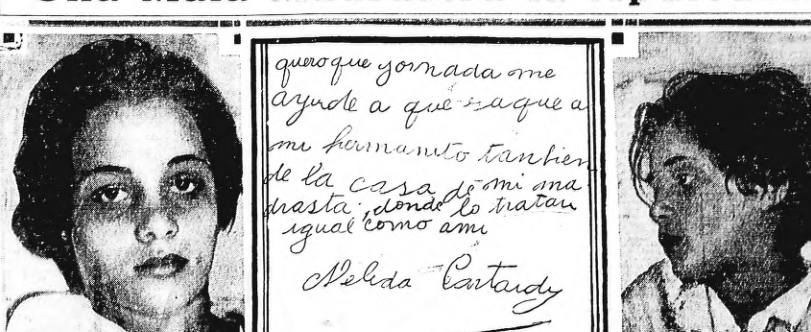 Una Mala
quero que jornada me
ayude a que saque a
mi hermanito tanbien
de la casa de mi ma
drasta, donde lo tratan
igual como ami
Nelida Cartardy